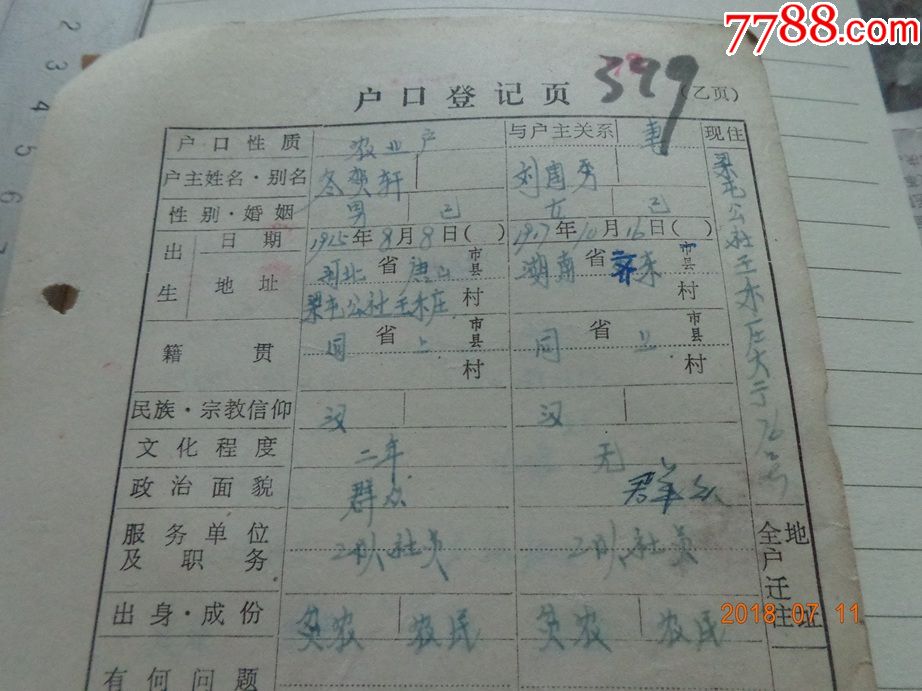 7788.com
户口登记页
399
(乙页)
户口性质 农业户 与户主关系 妻 现住
户主姓名·别名 冬贺轩 刘国秀
性别·婚姻 男 已 女 已
出生 日期 1925年8月8日( ) 1927年10月16日( )
地址 河北省唐山市县 湖南省 东市县
梁屯公社王木庄村 村
籍贯 同省上市县村 同省上市县村
民族·宗教信仰 汉 汉
文化程度 二年 无
政治面貌 群众 群众
服务单位及职务 二队社员 二队社员
出身·成份 贫农 农民 贫农 农民
有何问题
梁屯公社王木庄大
号
全户迁住地址
2018-07-11
2
3
4
5
6